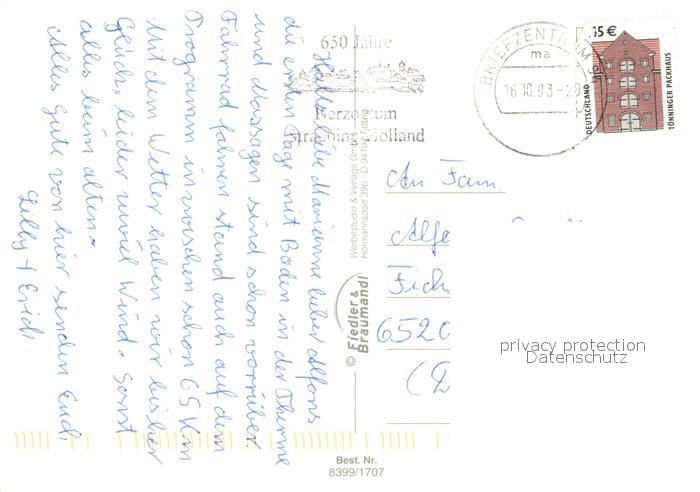 Hallo liebe Marianne lieber Alfons
die ersten Tage mit Baden in der Therme
und Massagen sind schon vorrüber
Fahrrad fahren stand auch auf dem
Programm inzwischen schon 65 Km
Mit dem Wetter haben wir bisher
Glück, leider zuviel Wind. Sonst
alles beim alten.
Alles Gute von hier senden Euch
Lilly + Erich
650 Jahre
Herzogtum
Straubing-Holland
BRIEFZENTRUM
ma
16.10.03-20
DEUTSCHLAND
TÖNNINGER PACKHAUS
Werbestudio & Verlags GmbH
© Fiedler & Braumandl
An Fam.
Alfo
Fich
6520
(D
privacy protection
Datenschutz
Best. Nr.
8399/1707